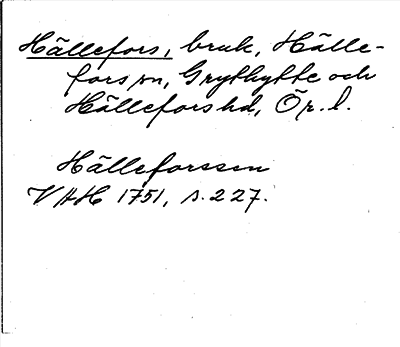 Hällefors, bruk, Hälle-
fors sn, Grythytte och
Hällefors hd, Ör. l.
Hälleforssen
VAH 1751, s. 227.